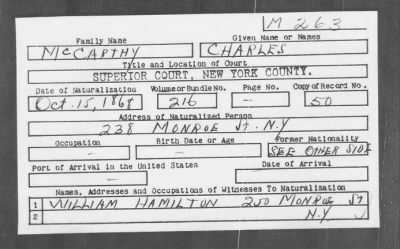 M 263
Family Name Given Name or Names
McCARTHY CHARLES
Title and Location of Court
SUPERIOR COURT, NEW YORK COUNTY.
Date of Naturalization Volume or Bundle No. Page No. Copy of Record No.
Oct. 15, 1868 216 - 50
Address of Naturalized Person
238 MONROE St. N.Y
Occupation Birth Date or Age Former Nationality
- - SEE OTHER SIDE
Port of Arrival in the United States Date of Arrival
- -
Names, Addresses and Occupations of Witnesses To Naturalization
1 WILLIAM HAMILTON 250 MONROE St
2 N.Y